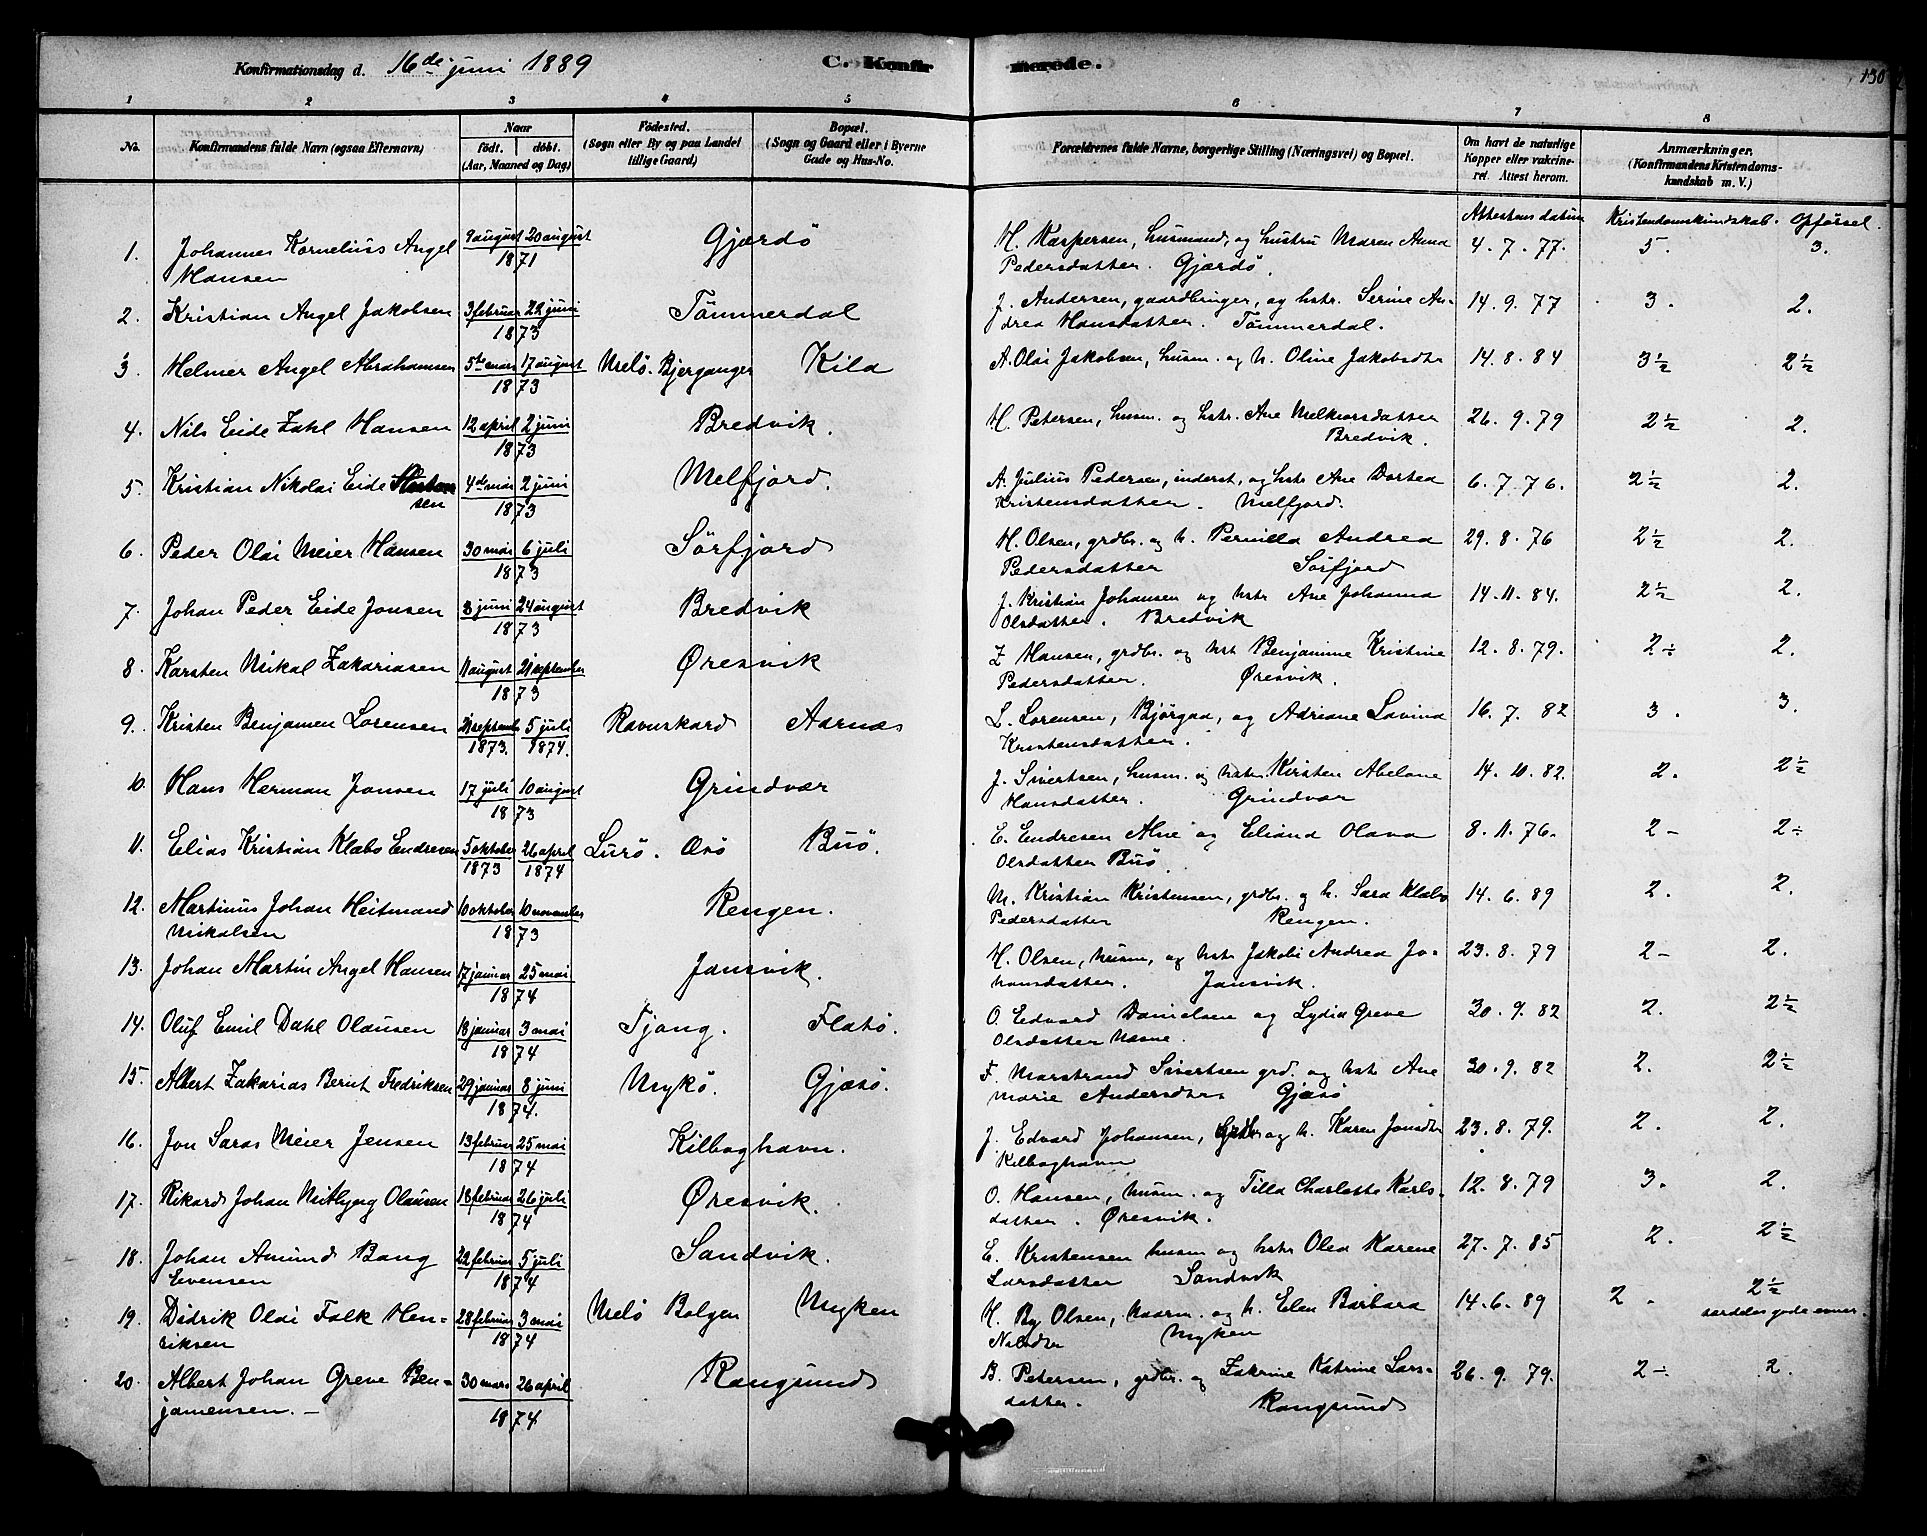 Konfirmationsdag d. 16de juni 1889 C. Konfir merede. 130
1 2 3 4 5 6 7 8
No. Konfirmandens fulde Navn (ogsaa Efternavn) Naar født. døbt. (Aar, Maaned og Dag) Fødested. (Sogn eller By og paa Landet tillige Gaard) Bopæl. (Sogn og Gaard eller i Byerne Gade og Hus-No. Forældrenes fulde Navne, borgerlige Stilling (Næringsvei) og Bopæl. Om havt de naturlige Kopper eller vakcineret. Attest herom. Anmærkninger, (Konfirmandens Kristendomskundskab m. V.)
Attestens datum Kristendomskundskab. Opførsel.
1. Johannes Kornelius Angel 9 august 20 august Gjærdö H. Kaspersen, husmand, og hustru Maren Anna 4. 7. 77. 5. 3.
Hansen 1871 Pedersdatter. Gjærdö.
2. Kristian Angel Jakobsen 3 februar 22 juni Tömmerdal J. Andersen, gaardbruger, og hstr. Serine An- 14. 9. 77 3. 2.
1873 drea Hansdatter. Tömmerdal.
3. Helmer Angel Abrahamsen 5te mars 17 august Melö. Bjerganger Kila A. Olai Jakobsen, husm. og h. Oline Jakobsdtr 14. 8. 84 3½ 2½
1873
4. Nils Eide Zahl Hansen 12 april 2 juni Bredvik. H. Petersen, husm. og hstr. Ane Melkiorsdatter 26. 9. 79 2½ 2.
1873 Bredvik.
5. Kristian Nikolai Eide 4de mai 2 juni Melfjord. A. Julius Pedersen, inderst, og hstr Ane Dortea 6. 7. 76. 2½ 2.
sen 1873 Kristensdatter. Melfjord.
6. Peder Olai Meier Hansen 30 mai 6 juli Sörfjord H. Olsen, grdbr. og h. Pernilla Andrea 29. 8. 76 2½ 2.
1873 Pedersdatter Sörfjord
7. Johan Peder Eide Jonsen 3 juni 24 august Bredvik J. Kristian Johansen og hstr Ane Johanna 14. 11. 84. 2½ 2.
1873 Olsdatter. Bredvik
8. Karsten Mikal Zakariasen 11 august 21 september Øresvik Z Hansen, grdbr. og hst Benjamine Kristine 12. 8. 79. 2÷ 2.
1873 Pedersdatter. Øresvik.
9. Kristen Benjamen Lorensen 5 juli Ravnskard Aarnæs L. Lorensen, Bjørgaa, og Adriane Lovina 16. 7. 82 3. 3.
1873. 1874. Kristensdatter.
10. Hans Herman Jansen 17 juli 10 august Grindvær J. Sivertsen, husm. og hstr. Kirsten Abelone 14. 10. 82. 2. 2½
1873 Hansdatter. Grindvær
11. Elias Kristian Klæbo Endresen 5 oktober 26 april Lurö. Buö. E. Endresen Alne og Eliana Olava 8. 11. 76. 2- 2÷
1873 1874 Olsdatter Buö.
12. Martinus Johan Heitmand 10 oktober 10 november Rengen. M. Kristian Kristensen, grdbr. og h. Sara Klæbo 14. 6. 89 2. 2.
Mikalsen 1873 Pedersdatter Rengen.
13. Johan Martin Angel Hansen 17 januar 25 mai Jansvik. H. Olsen, husm, og hst Jakobi Andrea Jo- 23. 8. 79 2- 2.
1874 hansdatter. Jansvik.
14. Oluf Emil Dahl Olausen 18 januar 3 mai Tjang. Flatö. O. Edvard Danielsen og Lydia Greve 30. 9. 82 2. 2½
1874 Olsdatter
15. Albert Zakarias Berut Fredriksen 29 januar 8 juni Mykö. Gjæsö. F. Marstrand Sivertsen grd. og hst. Ane 30. 9. 82 2. 2½
1874. Marie Andersdtr Gjæsö
16. Jon Saras Meier Jensen 13 februar 25 mai Kilboghavn. J. Edvard Johansen, og h. Karen Jonsdtr 23. 8. 79. 2. 2.
1874 Kilboghavn
17. Rikard Johan Olausen 18 februar 26 juli Øresvik. O. Hansen, husm. og Tilla Charlotte Karls- 12. 8. 79 3. 2.
1874 datter. Øresvik.
18. Johan Amund Bang 22 februar 5 juli Sandvik. E. Kristensen husm og hstr Olea Karene 27. 7. 85 2. 2½
Evensen 1874 Larsdatter Sandvik
19. Didrik Olai Falk Hen- 28 februar 3 mai Melö Bolgen Myken H. By Olsen, husm. og h. Elen Barbara 14. 6. 89 2. 2½
riksen 1874 Myken særdeles gode evner.
20. Albert Johan Greve Ben- 30 mars 26 april Rangsund B. Petersen, grdbr. og Zakrine Katrine Lars- 26. 9. 79. 2÷ 2.
jamensen. 1874 datter. Rangsund